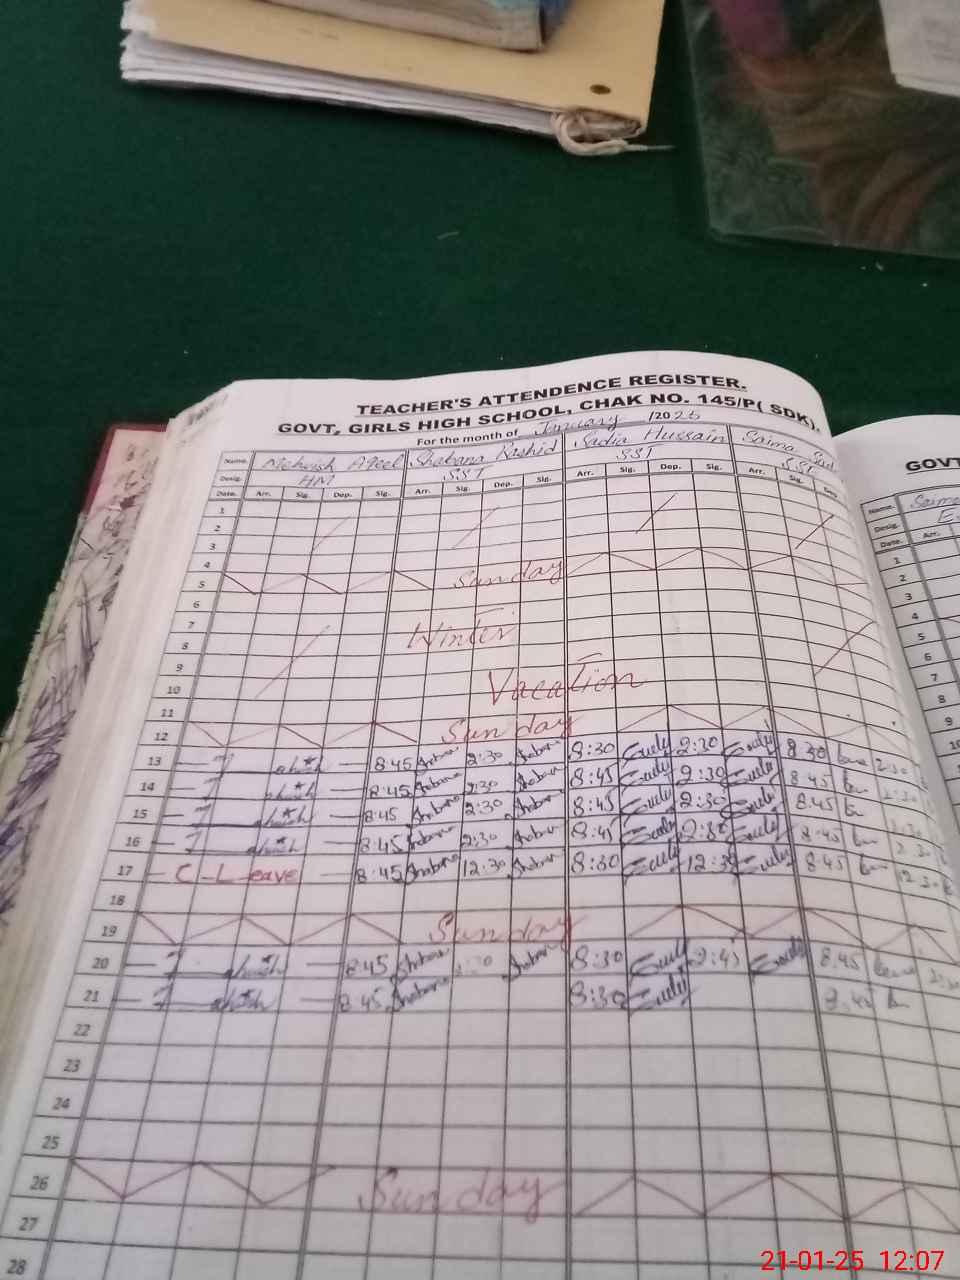 TEACHER'S ATTENDENCE REGISTER.
GOVT, GIRLS HIGH SCHOOL, CHAK NO. 145/P( SDK).
For the month of January /2025
Name. Mehwish Aqeel Shabana Rashid Sadia Hussain Saima
Desig. HM SST SST SST
Date. Arr. Sig. Dep. Sig. Arr. Sig. Dep. Sig. Arr. Sig. Dep. Sig. Arr. Sig. Dep.
1
2
3
4
5 Sunday
6
7 Winter
8
9
10 Vacation
11
12 Sunday
13 8:45 Shabana 2:30 Shabana 8:30 2:30 8:30 2:30
14 8:45 Shabana 2:30 Shabana 8:45 2:30 8:45 2:30
15 8:45 Shabana 2:30 Shabana 8:45 2:30 8:45
16 8:45 Shabana 2:30 Shabana 8:45 2:30 8:45 2:30
17 C-Leave 8:45 Shabana 12:30 Shabana 8:30 12:30 8:45 12:30
18
19 Sunday
20 8:45 Shabana Shabana 8:30 2:45 8:45
21 8:45 Shabana 8:30 8:45
22
23
24
25
26 Sunday
27
28
GOVT
Name. Saima
Desig.
Date. Arr.
1
2
3
4
5
6
7
8
9
10
21-01-25 12:07